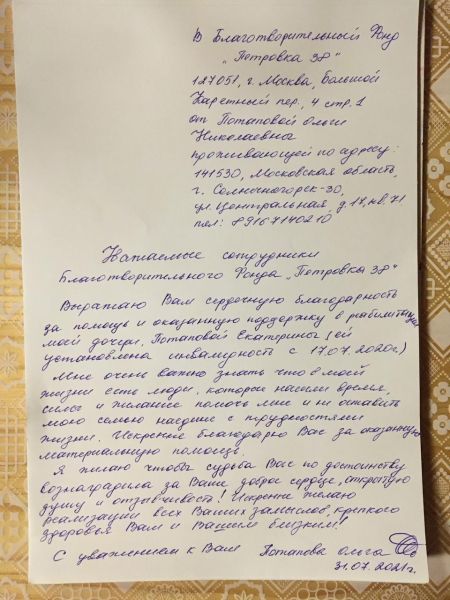 В Благотворительный Фонд
„Петровка 38"
127051, г. Москва, Большой
Каретный пер., 4 стр. 1
от Потаповой Ольги
Николаевна
проживающей по адресу:
141530, Московская область,
г. Солнечногорск-30,
ул. Центральная, д. 17, кв. 71
тел: 89167140210
Уважаемые сотрудники
Благотворительного Фонда „Петровка 38"
Выражаю Вам сердечную благодарность
за помощь и оказанную поддержку в реабилитации
моей дочери, Потаповой Екатерины (ей
установлена инвалидность с 17.07.2020г.)
Мне очень важно знать что в моей
жизни есть люди, которые нашли время,
силы и желание помочь мне и не оставить
мою семью наедине с трудностями
жизни. Искренне благодарю Вас за оказанную
материальную помощь.
Я желаю чтобы судьба Вас по достоинству
вознаградила за Ваше доброе сердце, открытую
душу и отзывчивость! Искренне желаю
реализации всех Ваших замыслов, крепкого
здоровья Вам и Вашим близким!
С уважением к Вам Потапова Ольга
31.07.2021г.